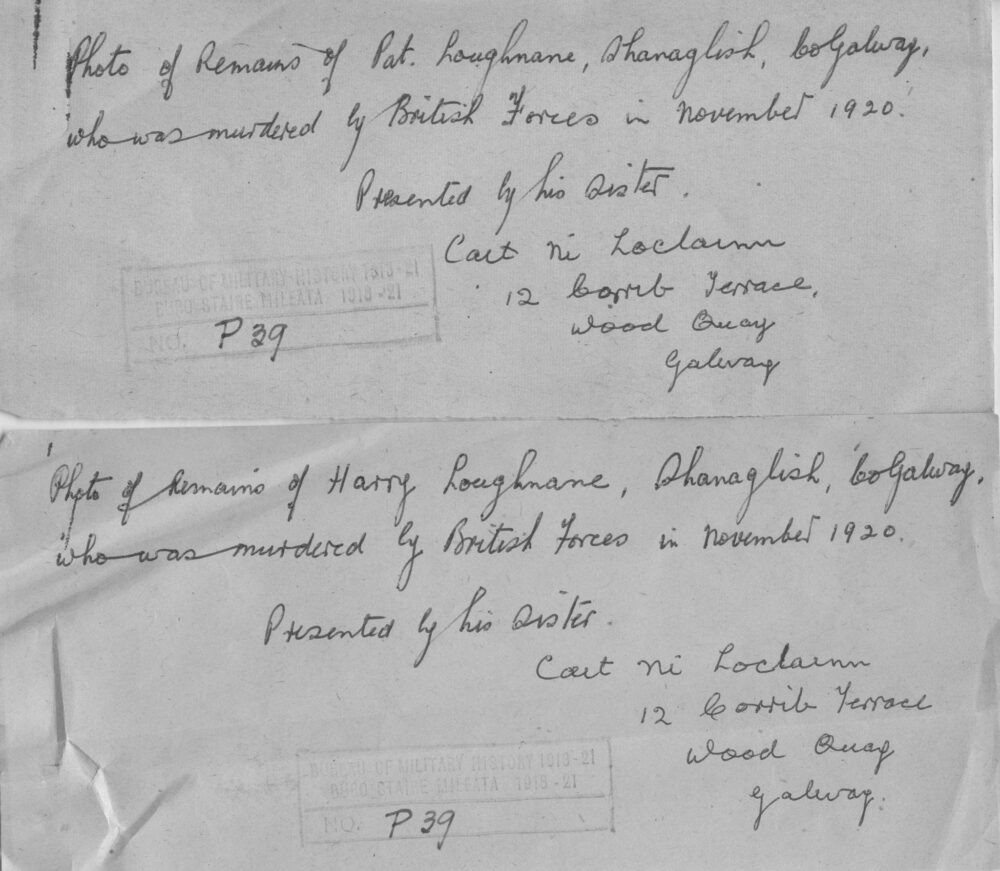 Photo of Remains of Pat. Loughnane, Shanaglish, Co Galway,
who was murdered by British Forces in November 1920.
Presented by his sister.
Cait Ni Loclainn
12 Corrib Terrace,
Wood Quay
Galway
BUREAU OF MILITARY HISTORY 1913-21
BURO STAIRE MILEATA 1913-21
NO. P 39
Photo of Remains of Harry Loughnane, Shanaglish, Co Galway,
who was murdered by British Forces in November 1920.
Presented by his sister.
Cait Ni Loclainn
12 Corrib Terrace
Wood Quay
Galway.
BUREAU OF MILITARY HISTORY 1913-21
BURO STAIRE MILEATA 1913-21
NO. P 39